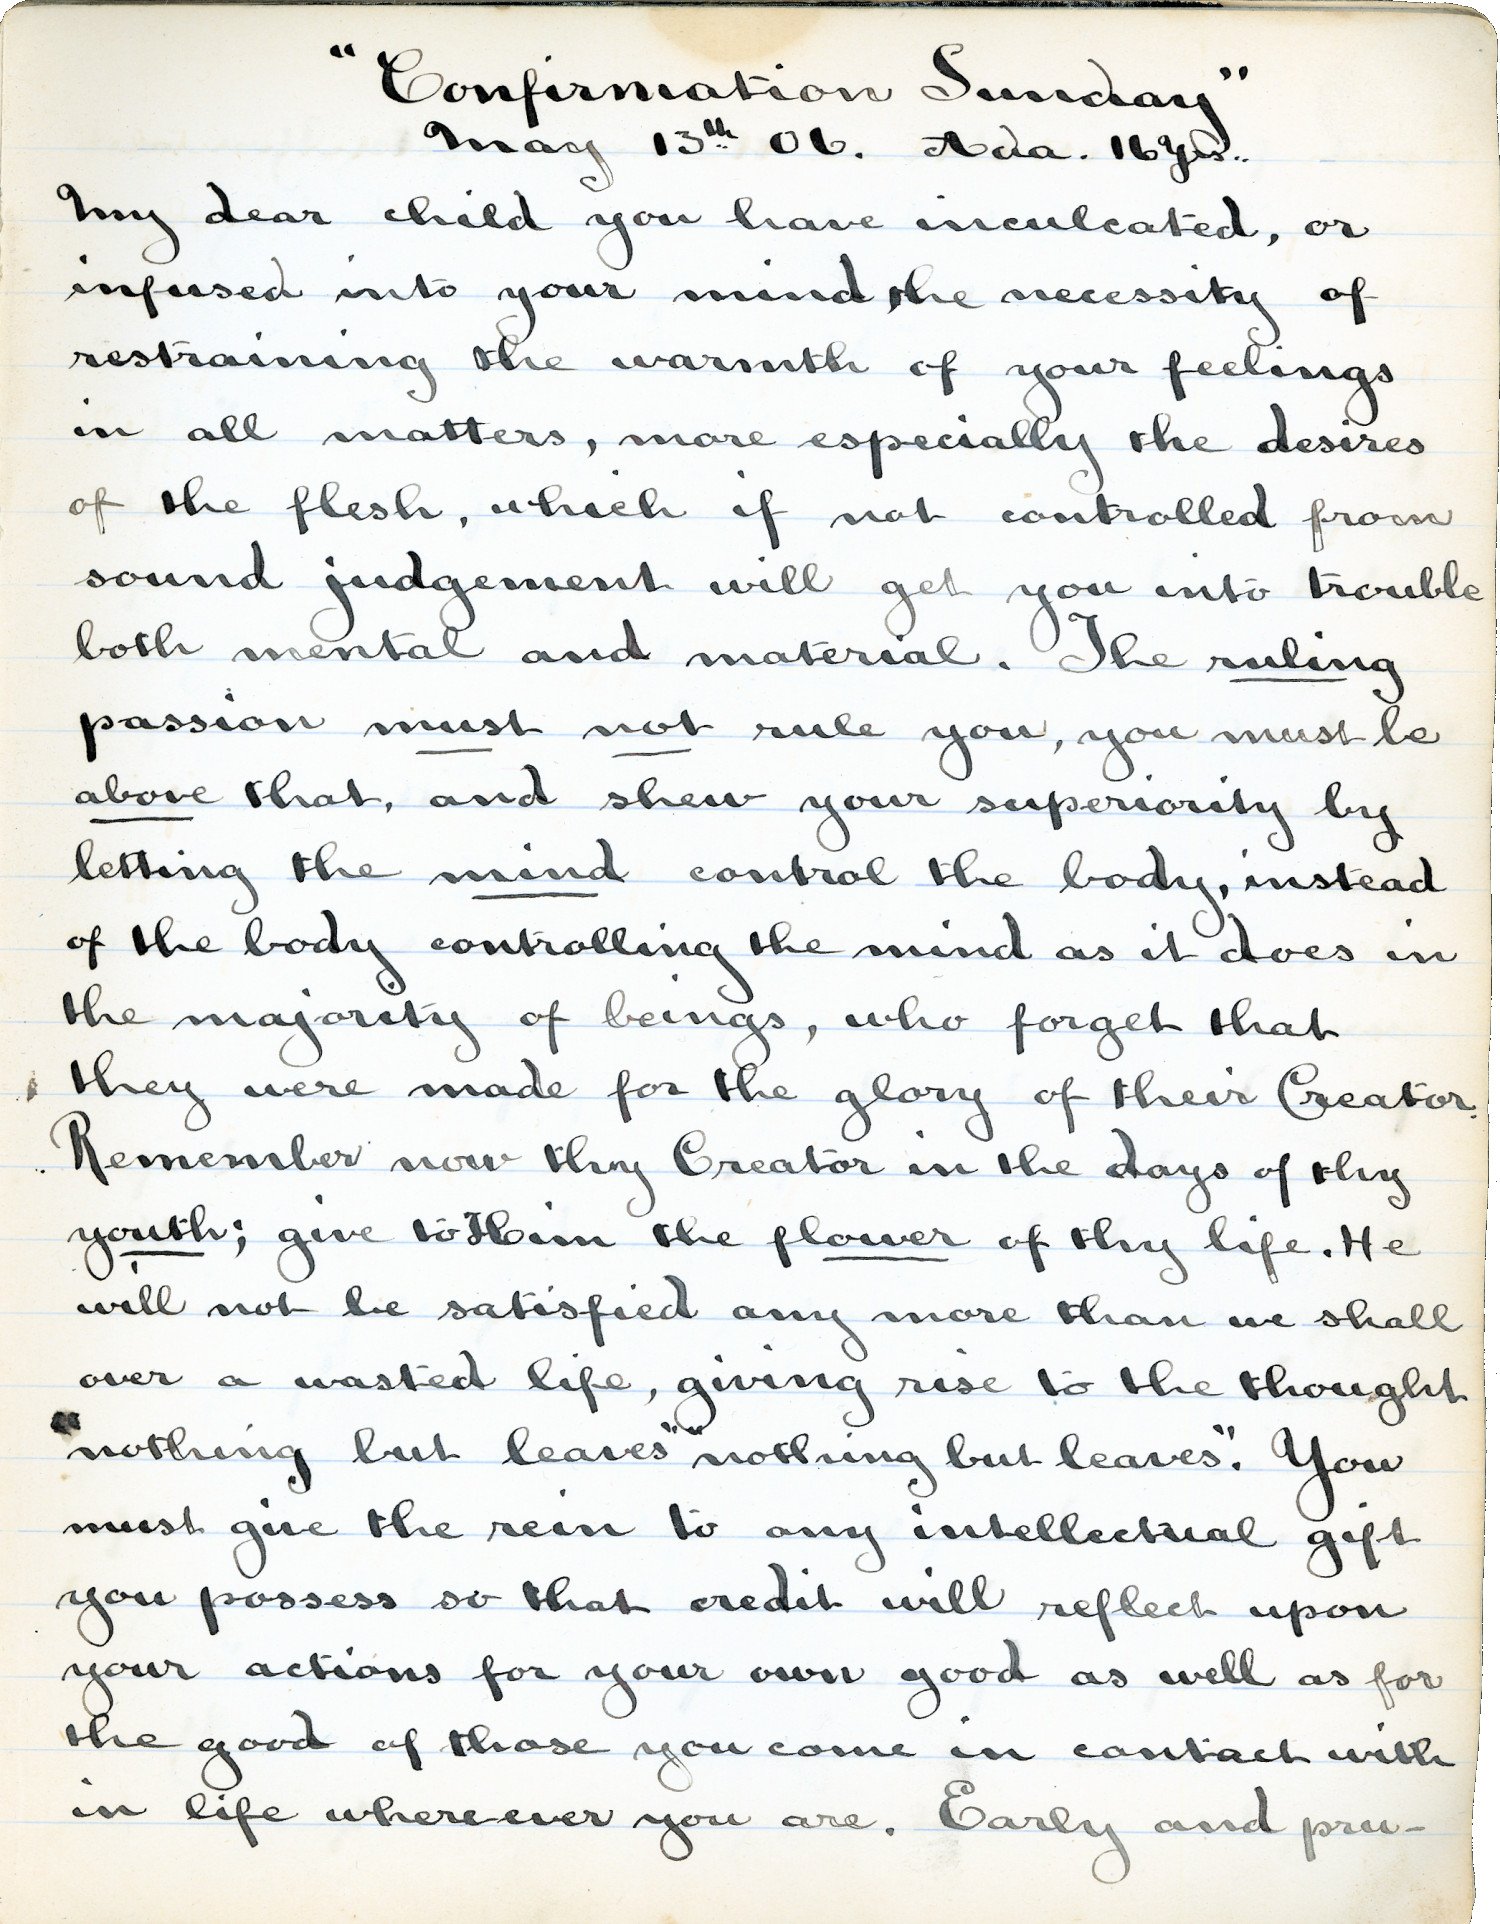 "Confirmation Sunday"
May 13th 06. Ada. 16 Yrs..
My dear child you have inculcated, or
infused into your mind, the necessity of
restraining the warmth of your feelings
in all matters, more especially the desires
of the flesh, which if not controlled from
sound judgement will get you into trouble
both mental and material. The ruling
passion must not rule you, you must be
above that, and shew your superiority by
letting the mind control the body, instead
of the body controlling the mind as it does in
the majority of beings, who forget that
they were made for the glory of their Creator.
Remember now thy Creator in the days of thy
youth; give to Him the flower of thy life. He
will not be satisfied any more than we shall
over a wasted life, giving rise to the thought
"nothing but leaves" "nothing but leaves". You
must give the rein to any intellectual gift
you possess so that credit will reflect upon
your actions for your own good as well as for
the good of those you come in contact with
in life where-ever you are. Early and pru-